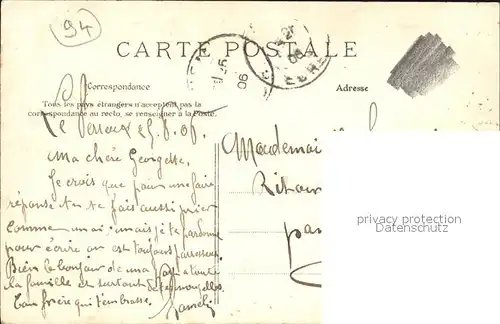 94
CARTE POSTALE
Correspondance
Adresse
Tous les pays étrangers n'acceptent pas la
correspondance au recto, se renseigner à la Poste.
06
06
Le Perreux
Ma chère Georgette
Je crois que pour me faire
réponse tu te fais aussi prier
comme moi mais je te pardonne
pour écrire on est toujours paresseux
Bien le bonjour de ma part à toute
la famille et surtout de tes nouvelles
Ton frère qui t'embrasse
Mademoi
privacy protection
Datenschutz